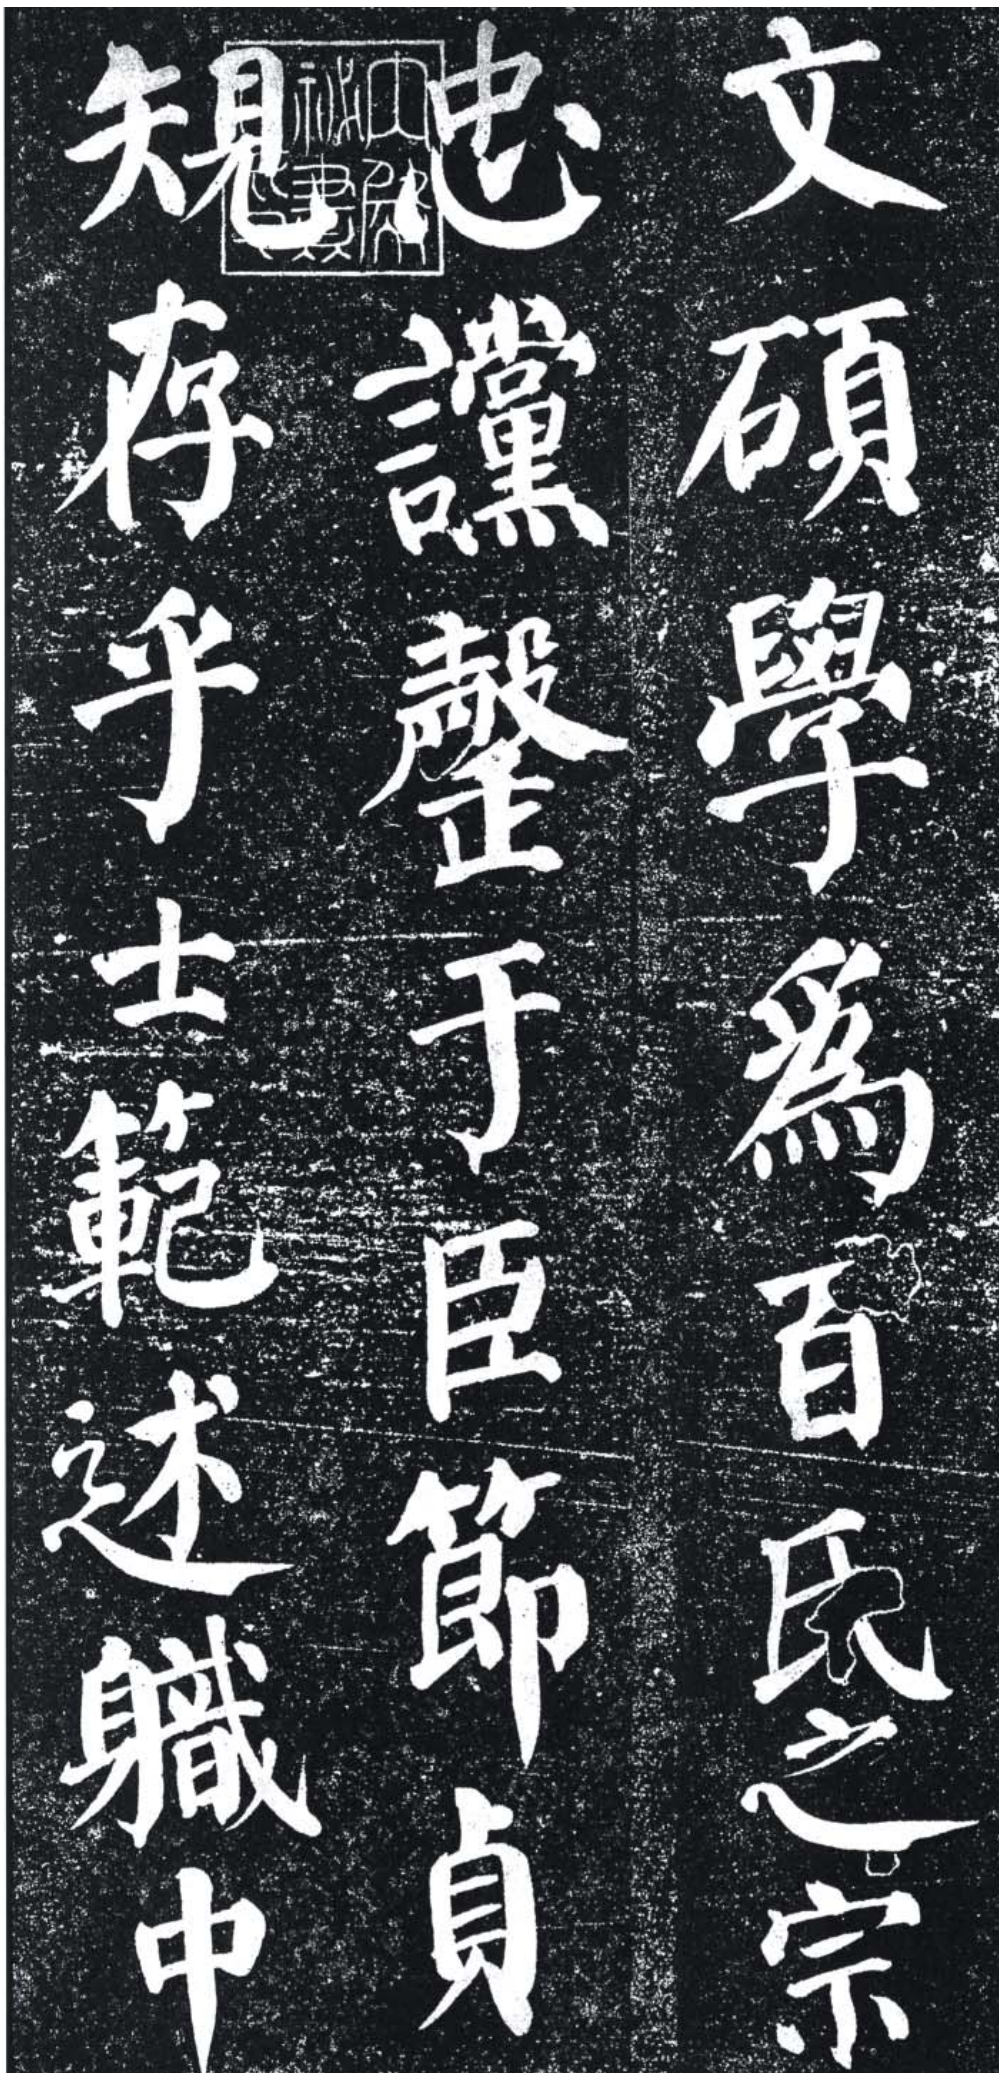 文碩學爲百氏之宗
忠讜罄于臣節貞
䂓存乎士範述軄中